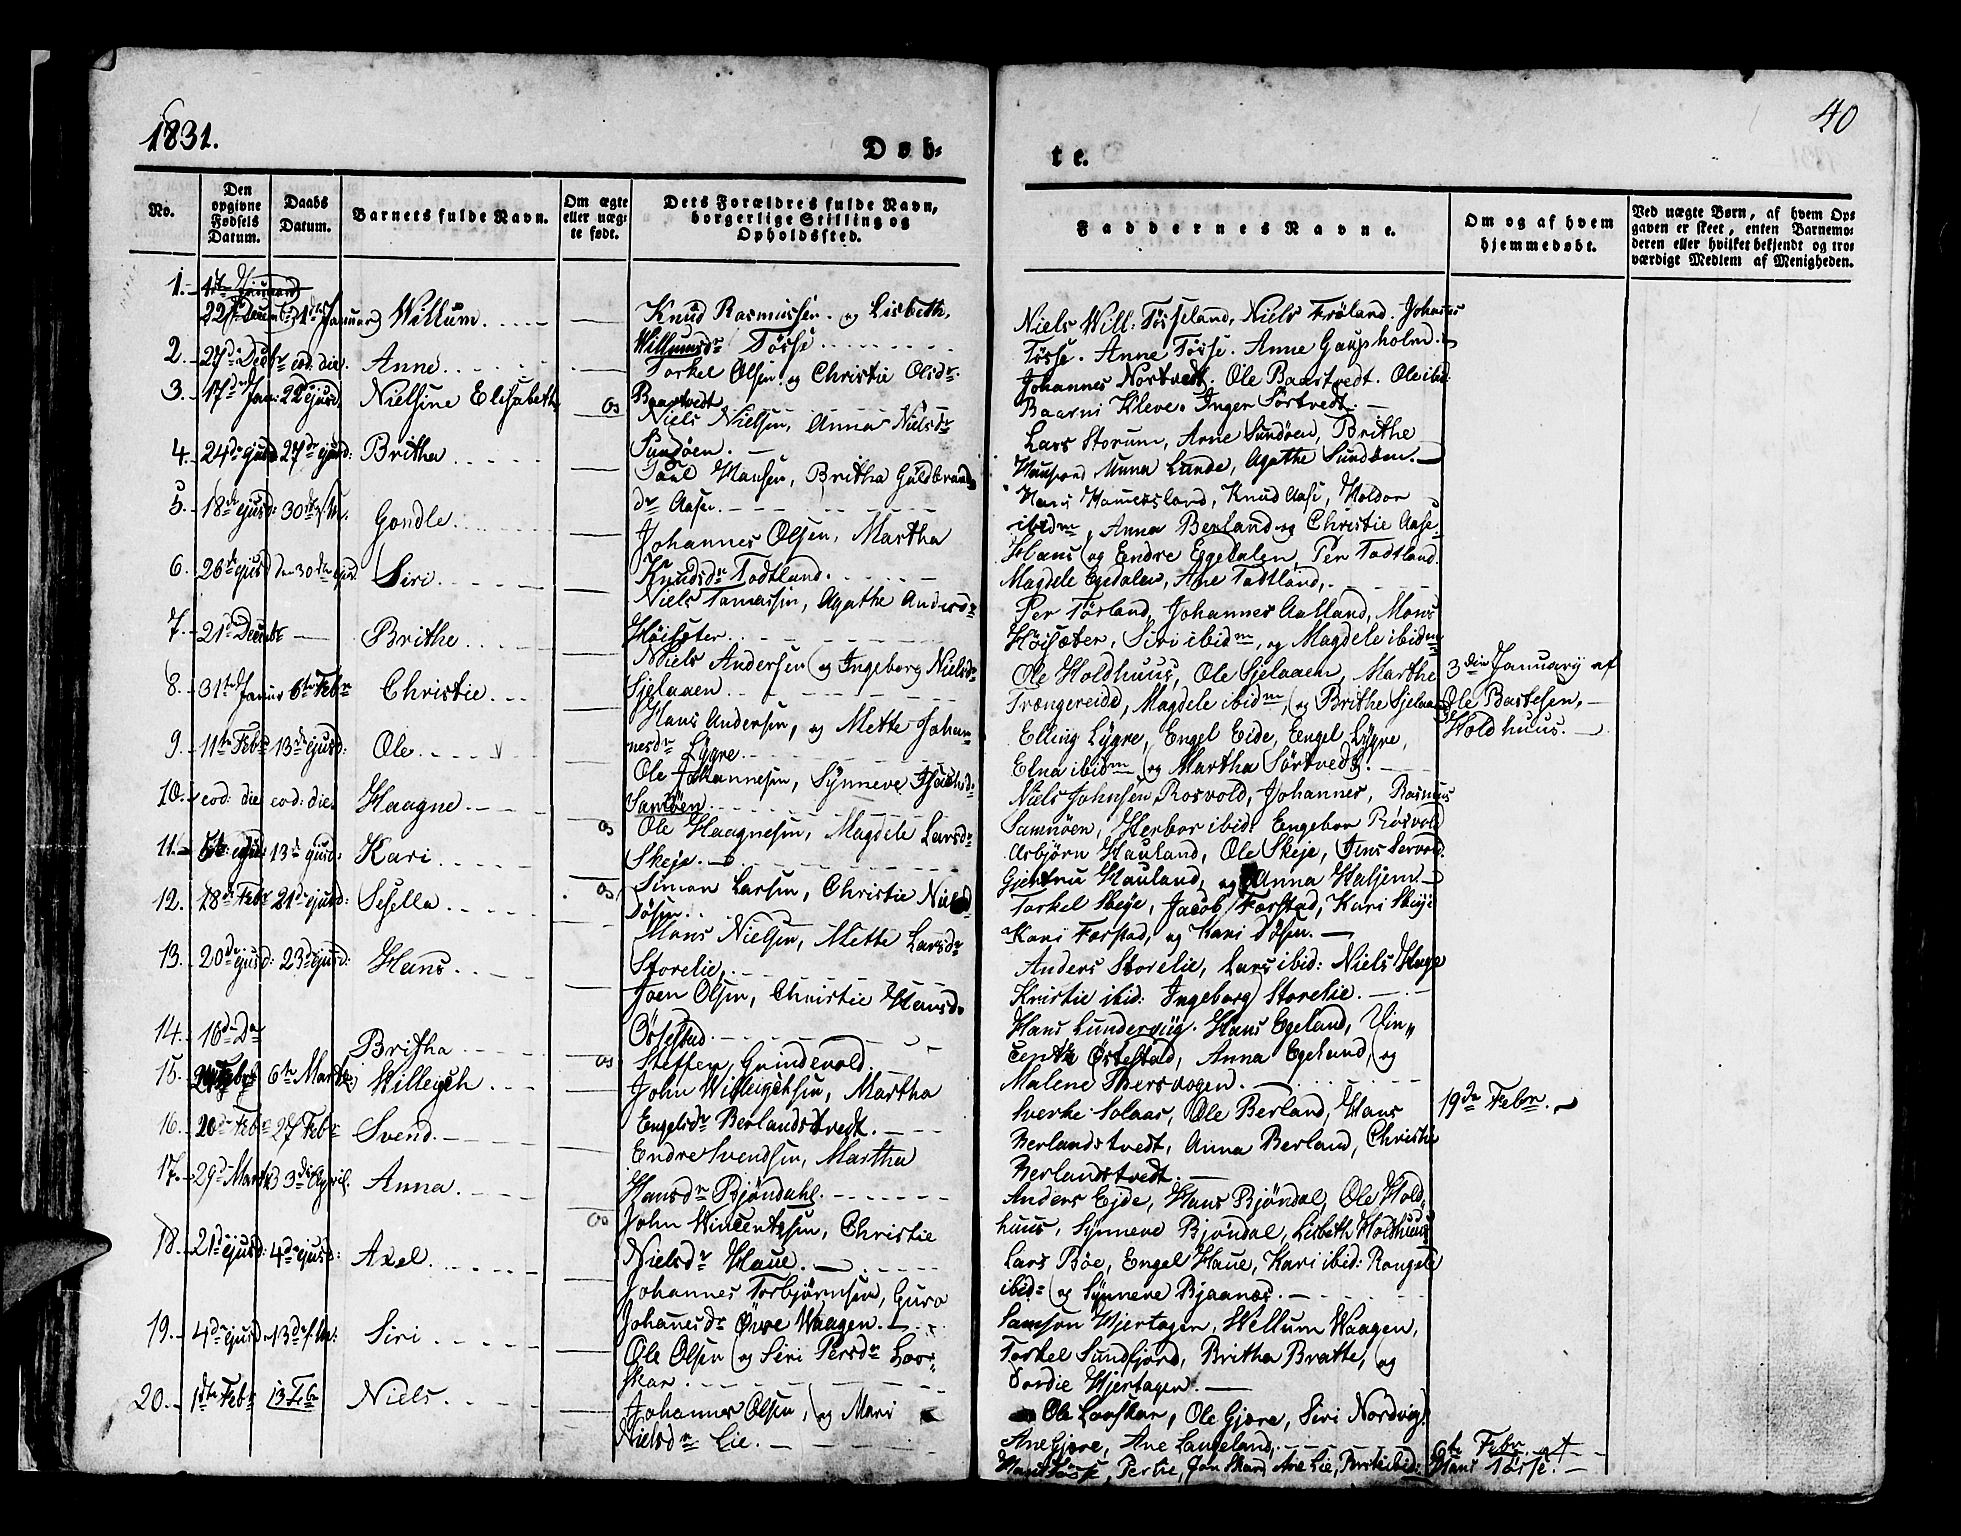 1831.
40
Døb-
te.
No.
Den
opgivne
Fødsels
Datum.
Daabs
Datum.
Barnets fulde Navn.
Om ægte
eller uægt
te født.
Dets Forældres fulde Navn,
borgerlige Stilling og
Opholdssted.
Faddernes Navne.
Om og af hvem
hjemmedøbt.
Ved uægte Børn, af hvem Op-
gaven er skeet, enten Barnemo-
deren eller hvilket bekjendt og tro-
værdigt Medlem af Menigheden.
1.
22de Decemb 1ste Januar Willum.
Knud Rasmussen og Lisbeth
Willumsdr Tøsse
Niels Will: Tøsseland, Niels Frøland. Johannes
Tøsse. Anne Tøsse. Anne Gaupholm.
2. 27de Decbr eod. die. Anne
Torkel Olsen og Christie Olsdr
Baartvedt
Johannes Nortvedt. Ole Baartvedt. Ole ibid:
Baarni Kleve. Inger Sørtvedt.
3. 17de Jan: 22 ejusd. Nielsine Elisabeth
Os
Niels Nielsen, Anna Nielsdr
Sundøen.
Lars Storum, Arne Sundøen, Brithe
Anna Lunde, Agathe Sundøen.
4. 24de ejusd 27de ejusd: Britha
Poul Hansen, Britha Guldbrands
dr Aasen.
Hans Hamersland, Knud Aase, Haldor
ibidm, Anna Berland og Christie Aase
5. 18de ejusd: 30te Gondle.
Johannes Olsen, Martha
Knudsdr Todtland.
Hans og Endre Eggedalen, Per Todtland
Magdele Egedalen, Ane Todtland,
6. 26de ejusd den 30te ejusd. Siri
Niels Tomassen, Agathe Andersdr
Høisæter.
Per Tørland, Johannes Aalland, Mons
Høisæter, Siri ibidm, og Magdele ibidm
7. 21de Decembr Brithe
Niels Andersen og Ingeborg Nielsdr
Sjelaaen
Ole Holdhuus, Ole Sjelaaen, Marthe
Trængereide, Magdele ibidm, og Brithe Sjelaaen
3die January af
Ole Bastesen,
Holdhuus.
8. 31te Januar 6te Febr Christie
Hans Andersen, og Mette Johan-
nesdr Lygre
Elling Lygre, Engel Eide, Engel Lygre,
Elna ibidm og Martha Sørtvedt.
9. 11te Febr 13de ejusd: Ole
Ole Johannesen, Synneve
Samnøen
Niels Johnsen Rosvold, Johannes, Rasmus
Samnøen, Herbor ibid: Engebor Røsvold
10. eod: die eod: die. Haagne
Os
Ole Haagnesen, Magdele Larsdr
Skeje.
Asbjørn Hauland, Ole Skeje, Jens Servold.
Gjertru Hauland, og Anna Haljem
11. ejusd: 13de ejusd: Kari
Os
Simon Larsen, Christie Niels
Døsen.
Torkel Skeje, Jacob Forstad, Kari Skeje
Kari Forstad, og Kari Døsen.
12. 18de Febr 21de ejusd: Sesella
Mons Nielsen, Mette Larsdr
Storelie,
Anders Storelie, Lars ibid: Niels Hage
Kristie ibid: Ingeborg Storelie.
13. 20de ejusd: 23de ejusd: Hans
Joen Olsen, Christie Hansd.
Østestad
Hans Lundervig. Hans Egeland, Vin
centz Østestad, Anna Egeland, og
Malene Thersvogen.
14. 16de Do Britha
Os
Steffen Grindevold
15. 6te Martz Willeigh
John Willeighsen, Martha
Engelsdr Berlandstvedt.
Sverke Solaas, Ole Berland, Hans
Berlandstvedt, Anna Berland, Christie
Berlandstvedt.
19de Febr.
16. 20de Febr 27 Febr Svend.
Endre Svendsen, Martha
Hansdr Bjøndahl.
Anders Ejde, Hans Bjøndal, Ole Hold-
huus, Synneve Bjøndal, Lisbeth Holdhuus
17. 29de Marts 3de April. Anna
Os
John Wincentzsen, Christie
Nielsdr Haue.
Lars Bøe, Engel Haue, Kari ibid: Rangele
ibid: og Synneve Bjaanæs.
18. 21de ejusd: 4de ejusd: Axel
Johannes Torbjørnsen, Guro
Johanesdr Øvre Waagen.
Samson Hjertager, Willum Waagen,
Torkel Sundfjord, Britha Bratte, og
Dordie Hjertagen.
19. 4de ejusd 13de Siri
Ole Olsen og Siri Persdr Lov-
skar
Ole Lovskar, Ole Gjøre, Siri Nordvig
Ane Gjøre, Ane Langeland,
20. 1ste Febr 13 Febr Niels
Johannes Olsen, og Mari
Nielsdr Lie.
Hans Tøsse, Per Lie, Jon Skar Ane Lie, ibid:
6te Febr. af
Hans Tøsse.